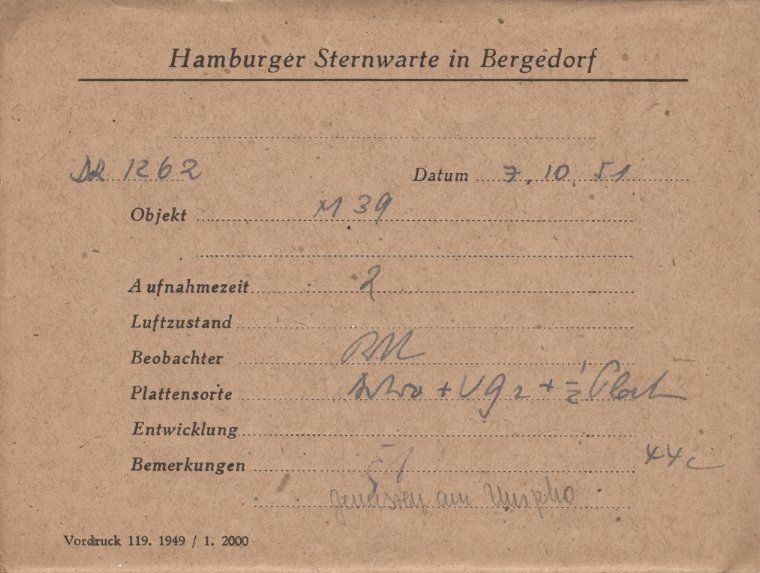 Hamburger Sternwarte in Bergedorf
1262 Datum 7. 10. 51
Objekt M 39
Aufnahmezeit 2
Luftzustand
Beobachter
Plattensorte + UG 2 + 1/2 Platt
Entwicklung
Bemerkungen 44c
gemessen am Unipho
Vordruck 119. 1949 / 1. 2000